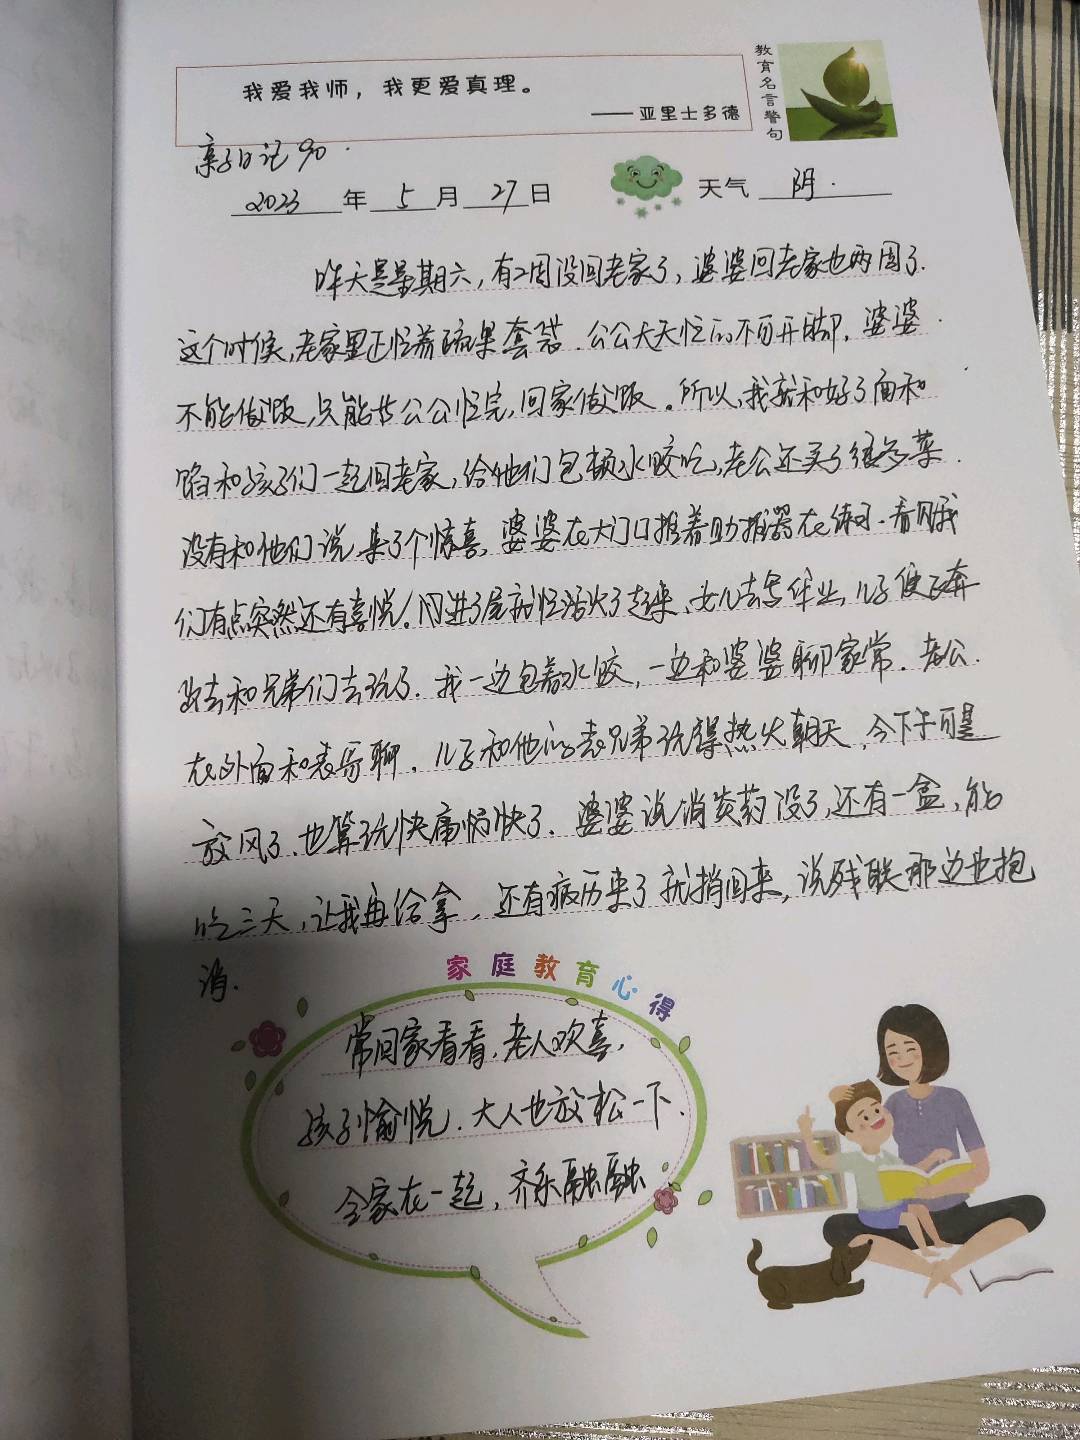 我爱我师，我更爱真理。
——亚里士多德
教育名言警句
亲子日记90.
2023年5月27日 天气 阴.
昨天是星期六，有2周没回老家了，婆婆回老家也两周了.
这个时候，老家里正忙着疏果套袋.公公天天忙的不可开脚，婆婆.
不能做饭，只能等公公忙完，回家做饭。所以，我就和好了面和
馅和孩子们一起回老家，给他们包顿水饺吃，老公还买了很多菜.
没有和他们说，来了个惊喜，婆婆在大门口推着助推器在练习.看见我
们有点突然还有喜悦！问进了屋就忙活火了起来、女儿去写作业，儿子便飞奔
跑去和兄弟们去玩了.我一边包着水饺，一边和婆婆聊家常.老公.
在外面和表哥聊.儿子和他的表兄弟玩得热火朝天，今下午可是
放风了、也算玩快痛愉快了.婆婆说消炎药没了，还有一盒，能
吃三天，让我再给拿，还有病历来了就捎回来，说残联那边也抱
消.
家庭教育心得
常回家看看，老人欢喜，
孩子愉悦.大人也放松一下.
全家在一起，齐乐融融